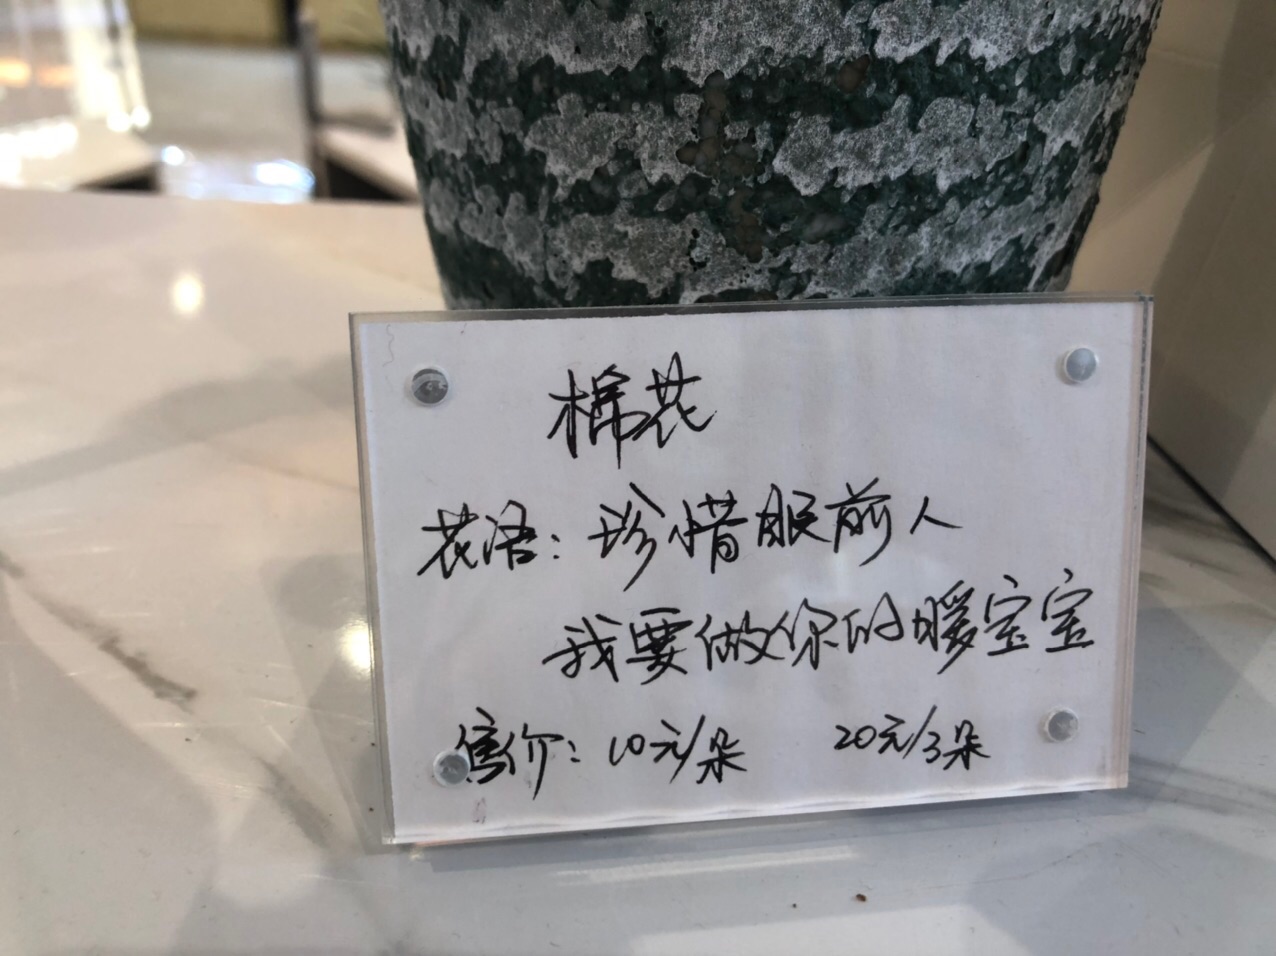 棉花
花语：珍惜眼前人
我要做你的暖宝宝
售价：10元/朵 20元/3朵